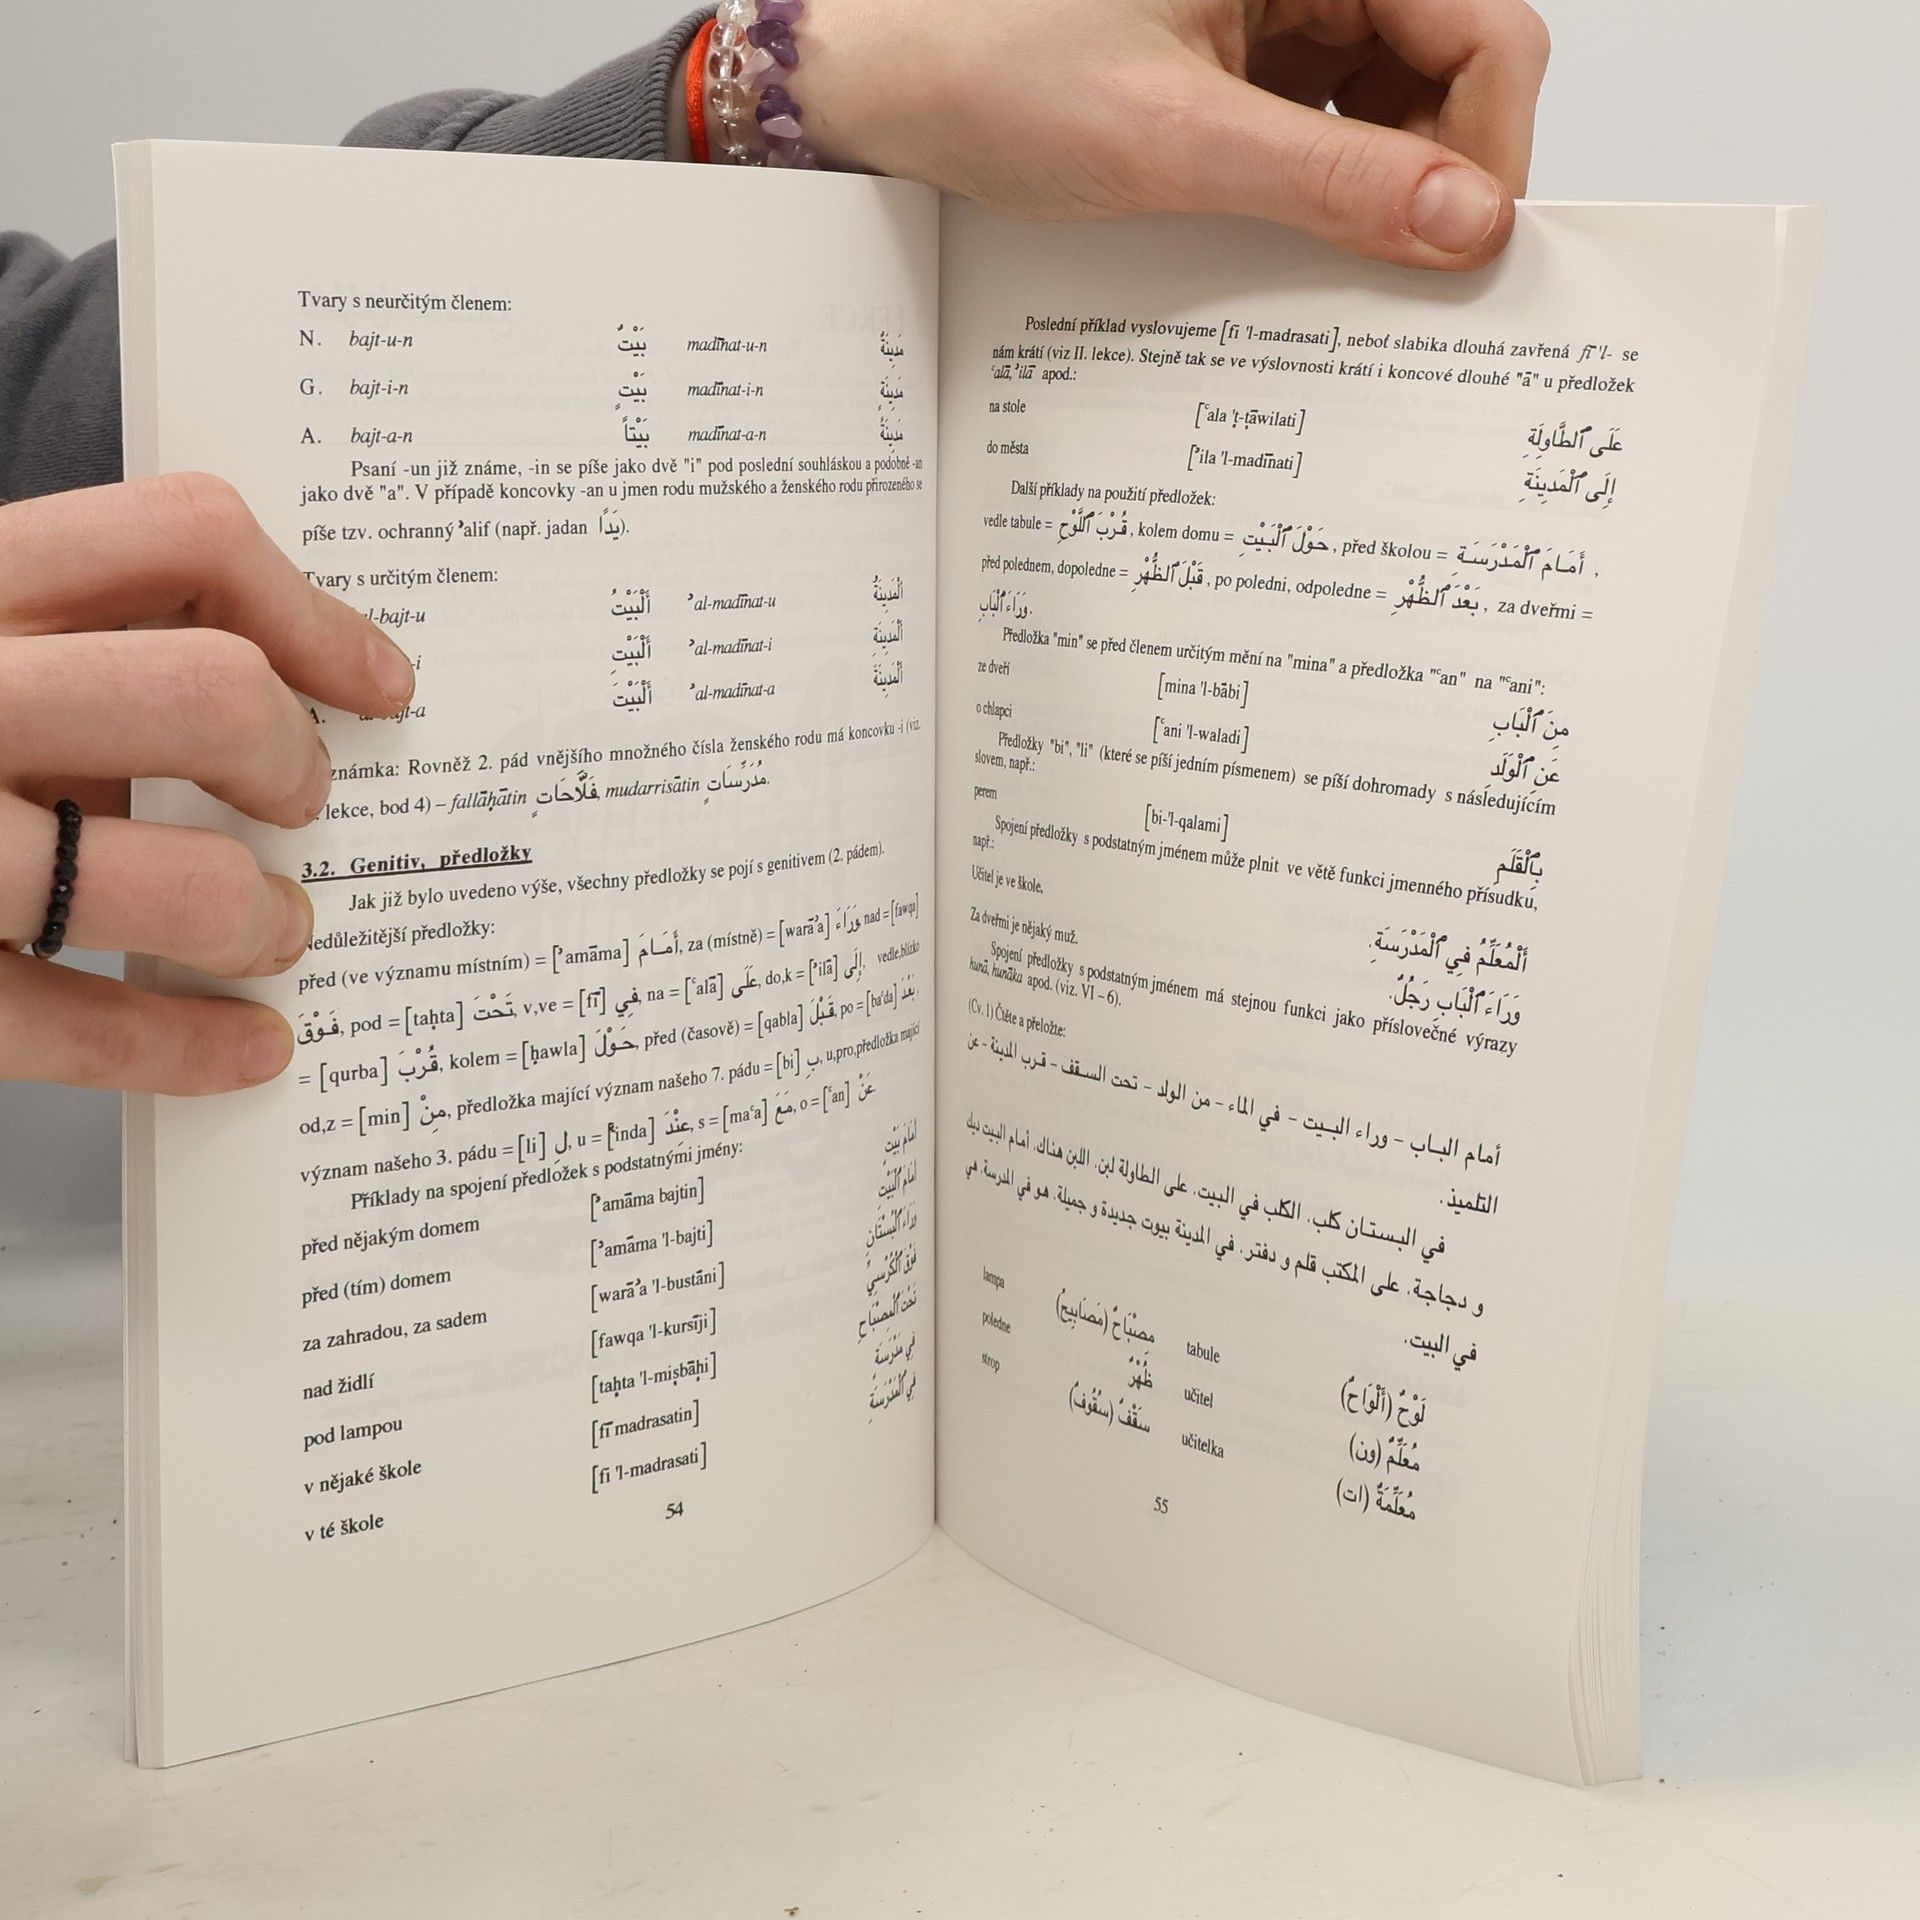 Tvary s neurčitým členem:
N. bajt-u-n بَيْتٌ madīnat-u-n مَدِينَةٌ
G. bajt-i-n بَيْتٍ madīnat-i-n مَدِينَةٍ
A. bajt-a-n بَيْتاً madīnat-a-n مَدِينَةً
Psaní -un již známe, -in se píše jako dvě "i" pod poslední souhláskou a podobně -an
jako dvě "a". V případě koncovky -an u jmen rodu mužského a ženského rodu přirozeného se
píše tzv. ochranný ʾalif (např. jadan يَدًا).
Tvary s určitým členem:
l-bajt-u أَلْبَيْتُ ʾal-madīnat-u أَلْمَدِينَةُ
-i أَلْبَيْتِ ʾal-madīnat-i أَلْمَدِينَةِ
A. al-bajt-a أَلْبَيْتَ ʾal-madīnat-a أَلْمَدِينَةَ
známka: Rovněž 2. pád vnějšího množného čísla ženského rodu má koncovku -i (viz.
lekce, bod 4) – fallāḥātin فَلَّاحَاتٍ, mudarrisātin مُدَرِّسَاتٍ.
3.2. Genitiv, předložky
Jak již bylo uvedeno výše, všechny předložky se pojí s genitivem (2. pádem).
Nedůležitější předložky:
před (ve významu místním) = [ʾamāma] أَمَامَ, za (místně) = [warāʾa] وَرَاءَ, nad = [fawqa]
فَوْقَ, pod = [taḥta] تَحْتَ, v,ve = [fī] فِي, na = [ʿalā] عَلَى, do,k = [ʾilā] إِلَى, vedle,blízko
= [qurba] قُرْبَ, kolem = [ḥawla] حَوْلَ, před (časově) = [qabla] قَبْلَ, po = [baʿda] بَعْدَ,
od,z = [min] مِنْ, předložka mající význam našeho 7. pádu = [bi] بِ, u,pro,předložka mající
význam našeho 3. pádu = [li] لِ, u = [ʿinda] عِنْدَ, s = [maʿa] مَعَ, o = [ʿan] عَنْ.
Příklady na spojení předložek s podstatnými jmény:
před nějakým domem [ʾamāma bajtin] أَمَامَ بَيْتٍ
před (tím) domem [ʾamāma 'l-bajti] أَمَامَ ٱلْبَيْتِ
za zahradou, za sadem [warāʾa 'l-bustāni] وَرَاءَ ٱلْبُسْتَانِ
nad židlí [fawqa 'l-kursīji] فَوْقَ ٱلْكُرْسِيِّ
pod lampou [taḥta 'l-miṣbāḥi] تَحْتَ ٱلْمِصْبَاحِ
v nějaké škole [fī madrasatin] فِي مَدْرَسَةٍ
v té škole [fi 'l-madrasati] فِي ٱلْمَدْرَسَةِ
54
Poslední příklad vyslovujeme [fi 'l-madrasati], neboť slabika dlouhá zavřená fī 'l- se
nám krátí (viz II. lekce). Stejně tak se ve výslovnosti krátí i koncové dlouhé "ā" u předložek
ʿalā, ʾilā apod.:
na stole [ʿala 'ṭ-ṭāwilati] عَلَى ٱلطَّاوِلَةِ
do města [ʾila 'l-madīnati] إِلَى ٱلْمَدِينَةِ
Další příklady na použití předložek:
vedle tabule = قُرْبَ ٱللَّوْحِ, kolem domu = حَوْلَ ٱلْبَيْتِ, před školou = أَمَامَ ٱلْمَدْرَسَةِ,
před polednem, dopoledne = قَبْلَ ٱلظُّهْرِ, po poledni, odpoledne = بَعْدَ ٱلظُّهْرِ, za dveřmi =
وَرَاءَ ٱلْبَابِ.
Předložka "min" se před členem určitým mění na "mina" a předložka "ʿan" na "ʿani":
ze dveří [mina 'l-bābi] مِنَ ٱلْبَابِ
o chlapci [ʿani 'l-waladi] عَنِ ٱلْوَلَدِ
Předložky "bi", "li" (které se píší jedním písmenem) se píší dohromady s následujícím
slovem, např.:
perem [bi-'l-qalami] بِٱلْقَلَمِ
Spojení předložky s podstatným jménem může plnit ve větě funkci jmenného přísudku,
např.:
Učitel je ve škole. أَلْمُعَلِّمُ فِي ٱلْمَدْرَسَةِ.
Za dveřmi je nějaký muž. وَرَاءَ ٱلْبَابِ رَجُلٌ.
Spojení předložky s podstatným jménem má stejnou funkci jako příslovečné výrazy
hunā, hunāka apod. (viz. VI – 6).
(Cv. 1) Čtěte a přeložte:
أمام البـاب – وراء البـيت – في الماء – من الولد – تحت السـقف – قرب المدينة – عن
التلميذ.
في البستـان كلب. الكلب في البيت. على الطاولة لبن. اللبن هناك. أمام البيت ديك
و دجاجة. على المكتب قلم و دفتر. في المدينة بيوت جديدة و جميلة. هو في المدرسة. هي
في البيت.
lampa مِصْبَاحٌ (مَصَابِيحُ) tabule لَوْحٌ (أَلْوَاحٌ)
poledne ظُهْرٌ učitel مُعَلِّمٌ (ون)
strop سَقْفٌ (سُقُوفٌ) učitelka مُعَلِّمَةٌ (ات)
55